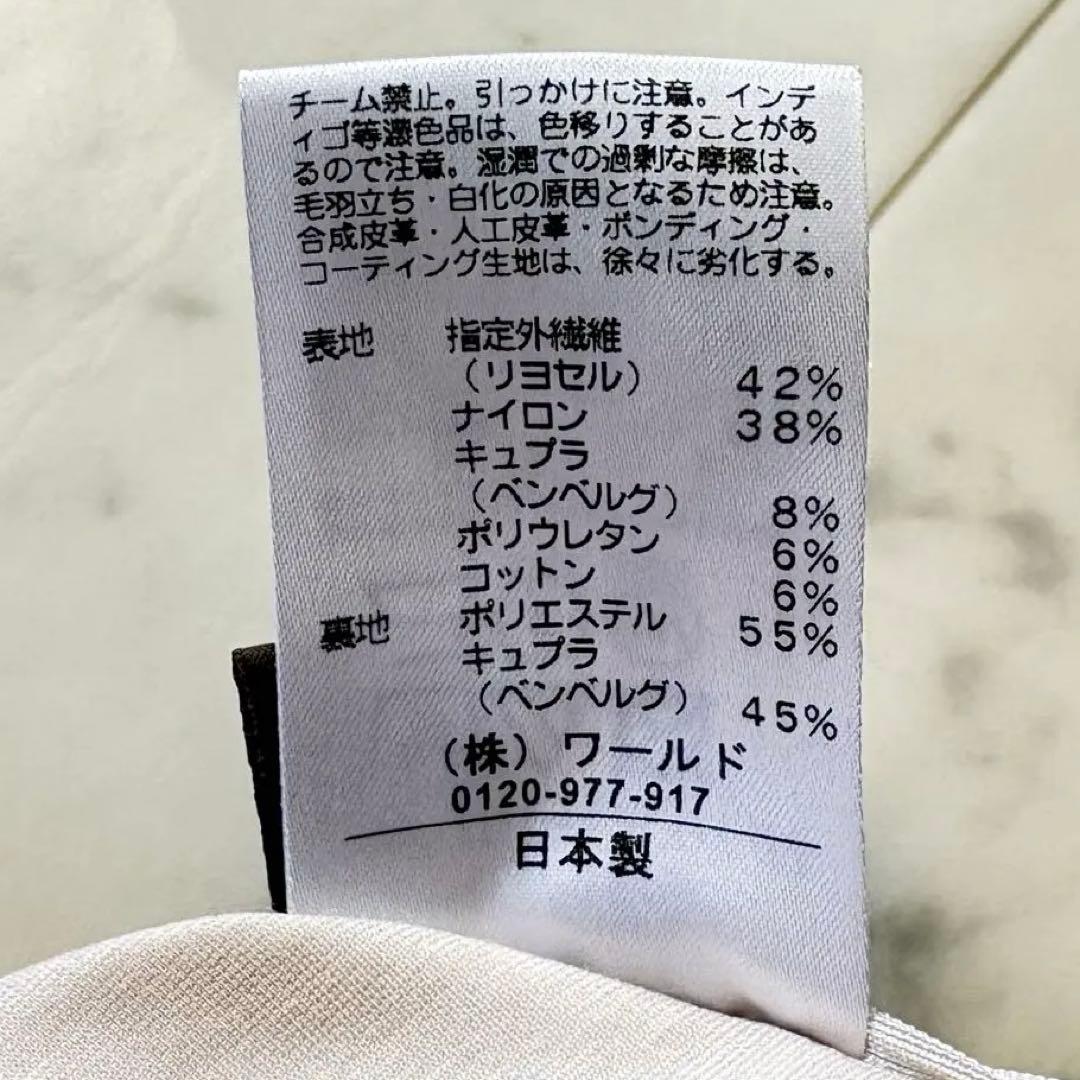 チーム禁止。引っかけに注意。インデ
ィゴ等濃色品は、色移りすることがあ
るので注意。湿潤での過剰な摩擦は、
毛羽立ち・白化の原因となるため注意。
合成皮革・人工皮革・ボンディング・
コーティング生地は、徐々に劣化する。
表地 指定外繊維
(リヨセル) 42%
ナイロン 38%
キュプラ
(ベンベルグ) 8%
ポリウレタン 6%
コットン 6%
裏地 ポリエステル 55%
キュプラ
(ベンベルグ) 45%
(株) ワールド
0120-977-917
日本製